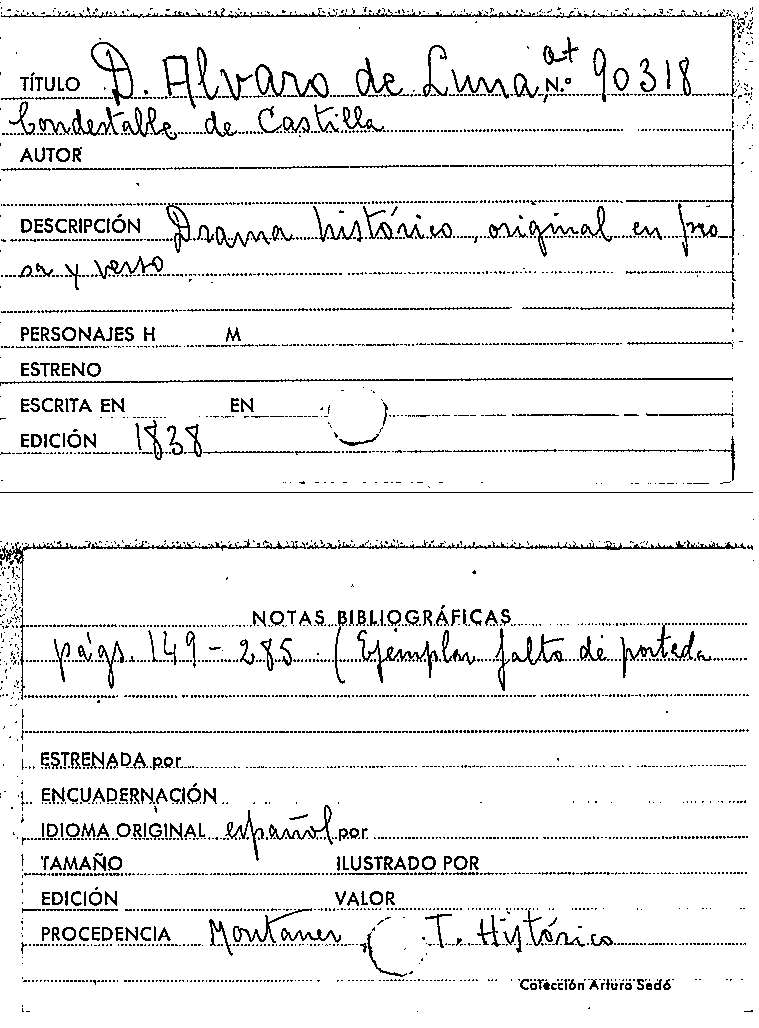 TÍTULO D. Alvaro de Luna, at N.º 90318
Condestable de Castilla
AUTOR
DESCRIPCIÓN Drama histórico, original en pro
sa y verso
PERSONAJES H M
ESTRENO
ESCRITA EN EN
EDICIÓN 1838
NOTAS BIBLIOGRÁFICAS
págs. 149 - 285 (Ejemplar falto de porteda
ESTRENADA por
ENCUADERNACIÓN
IDIOMA ORIGINAL español por
TAMAÑO ILUSTRADO POR
EDICIÓN VALOR
PROCEDENCIA Montaner T. Histórico
Colección Arturo Sedó